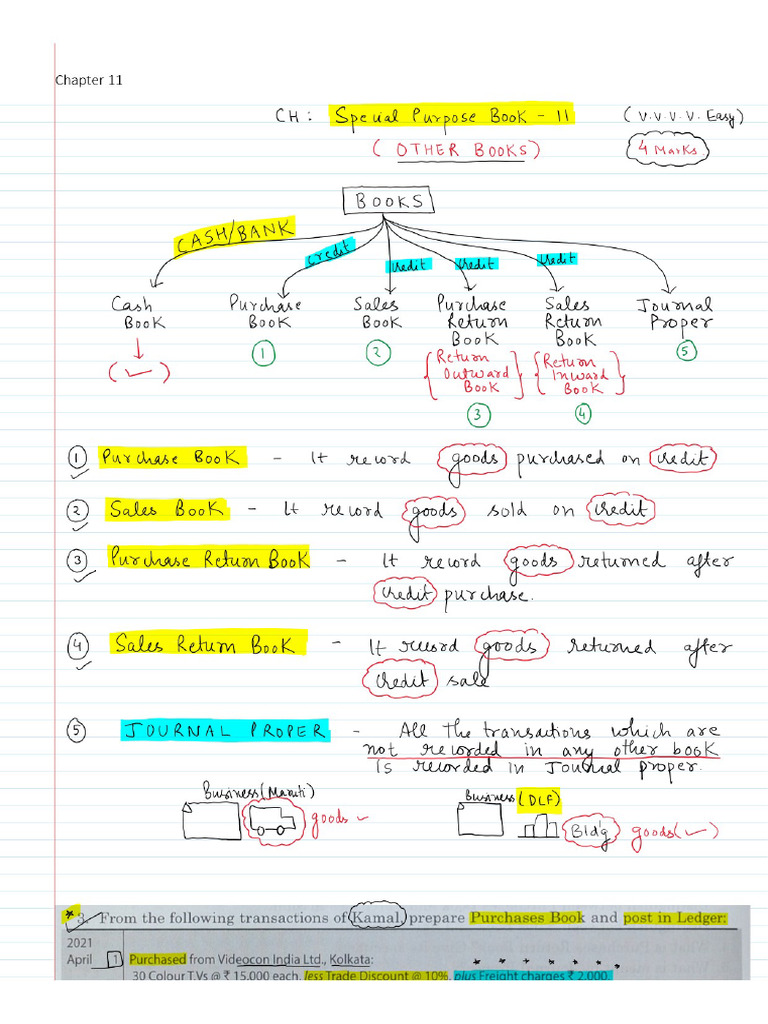 Chapter 11
CH : Special Purpose Book - II (V.V.V.V. Easy)
( OTHER BOOKS) 4 Marks
BOOKS
CASH/BANK
Credit Credit Credit Credit
Cash Purchase Sales Purchase Sales Journal
Book Book Book Return Return Proper
Book Book
(✓) 1 2 {Return {Return 5
Outward Inward
Book} Book}
3 4
1 Purchase Book - It record goods purchased on credit
2 Sales Book - It record goods sold on credit
3 Purchase Return Book - It record goods returned after
credit purchase.
4 Sales Return Book - It record goods returned after
credit sale
5 JOURNAL PROPER - All the transactions which are
not recorded in any other book
is recorded in Journal proper.
Business (Maruti) Business (DLF)
goods ✓ Bldg goods (✓)
* 3. From the following transactions of Kamal, prepare Purchases Book and post in Ledger:
2021
April 1 Purchased from Videocon India Ltd., Kolkata:
30 Colour T.Vs @ ₹ 15,000 each, less Trade Discount @ 10%, plus Freight charges ₹ 2,000.